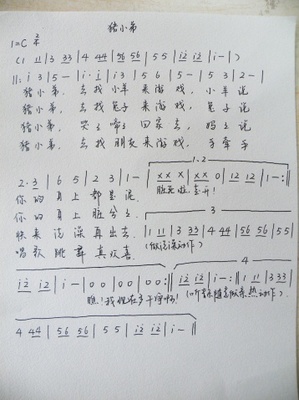 猪小弟
1=C 2/4
(1 11 | 3 33 | 4 44 | 56 56 | 5 5 | i2 i2 | i - |)
||: i 3 | 5 - | i · i | i 3 | 5 6 | 5 - | 5 3 | 2 - |
猪小弟, 去找小羊 来游戏, 小羊说
猪小弟, 去找兔子 来游戏, 兔子说
猪小弟, 哭着 回家去, 妈妈说
猪小弟, 去找朋友 来游戏, 手牵手
1·2
2·3 | 6 5 | 2 3 | 1 - | xx x | xx x 0 | 12 12 | 1 - :||
你的身上都是泥 脏死啦 走开!
你的身上脏兮兮
3
快来洗澡再出去 1 11 | 3 33 | 4 44 | 56 56 | 5 5 |
唱歌跳舞真欢喜 (做洗澡动作)
4
i2 i2 | i - | 0 0 | 0 0 | 0 0 :|| i2 i2 | i - :|| 1 11 | 3 33 |
瞧!我现在多干净啊!
4
4 44 | 56 56 | 5 5 | i2 i2 | i - ||